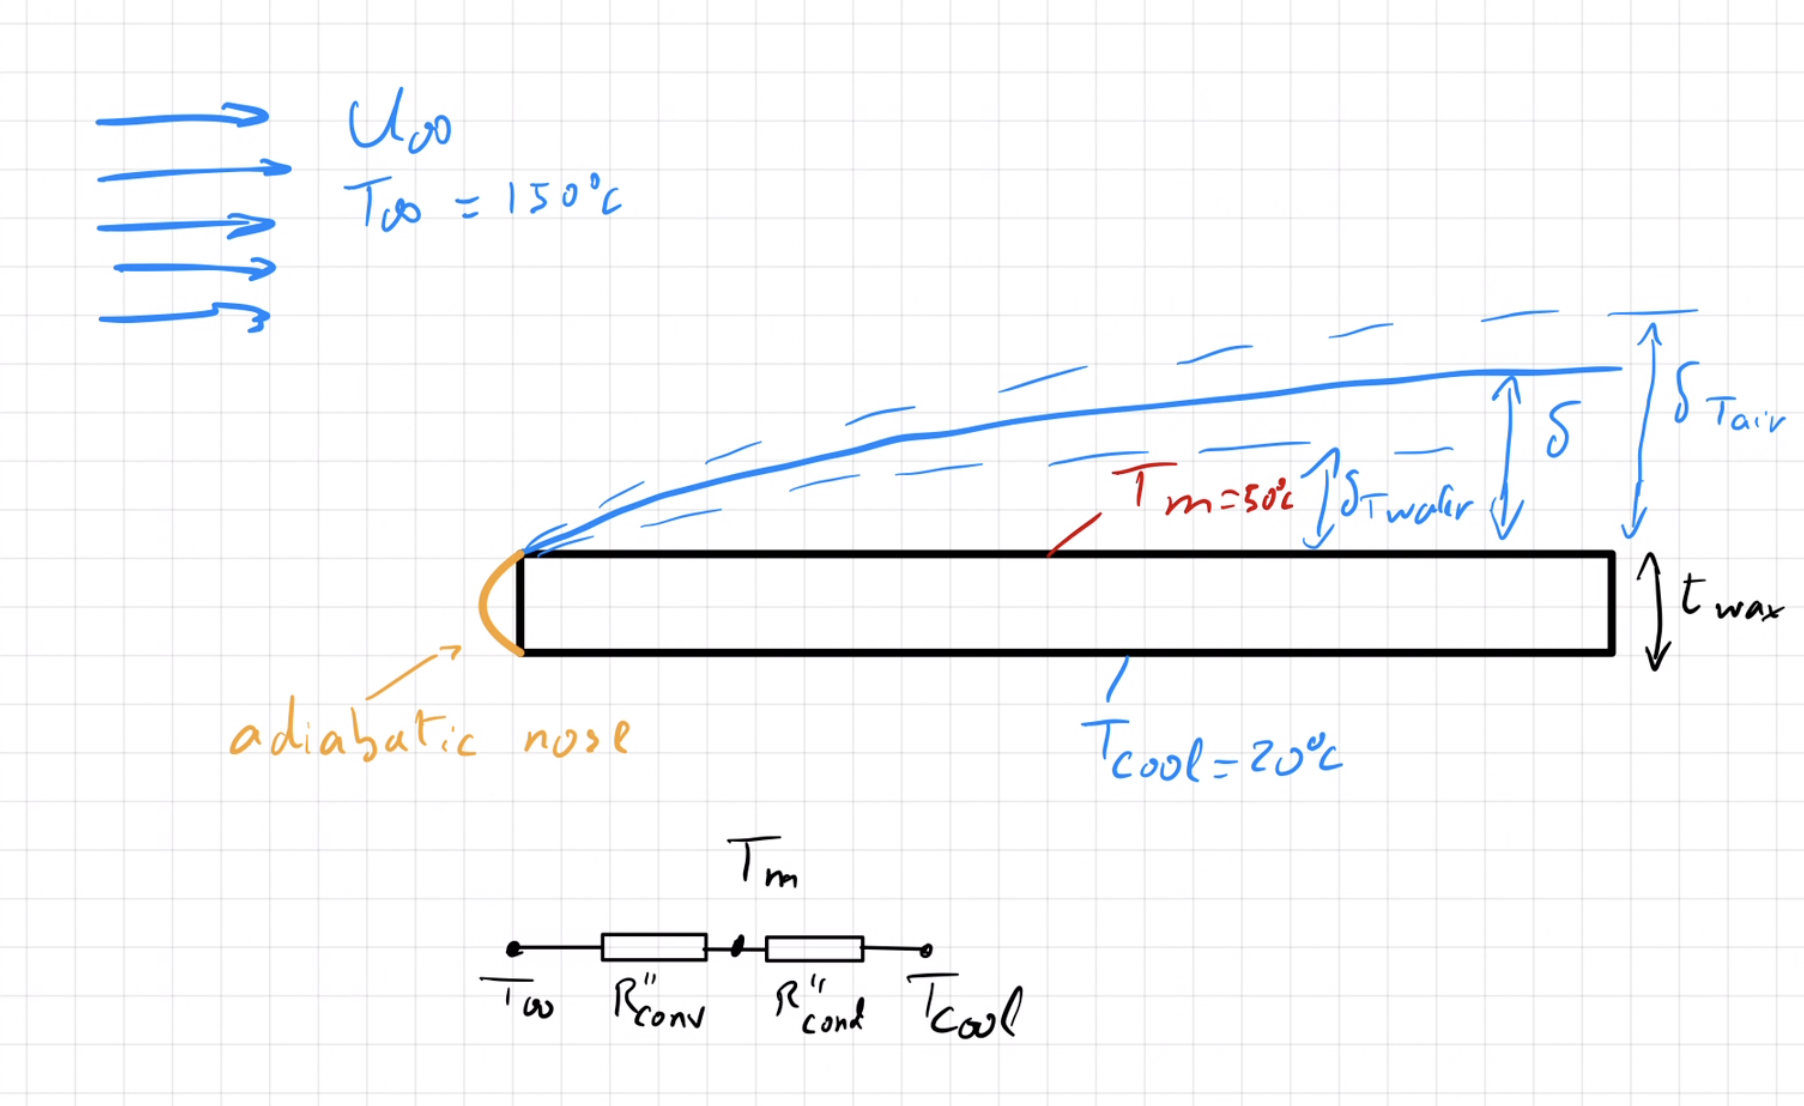 U∞
T∞ = 150°C
δ
δTair
Tm=50°C
δTwater
twax
adiabatic nose
Tcool=20°C
Tm
T∞
R"conv
R"cond
Tcool